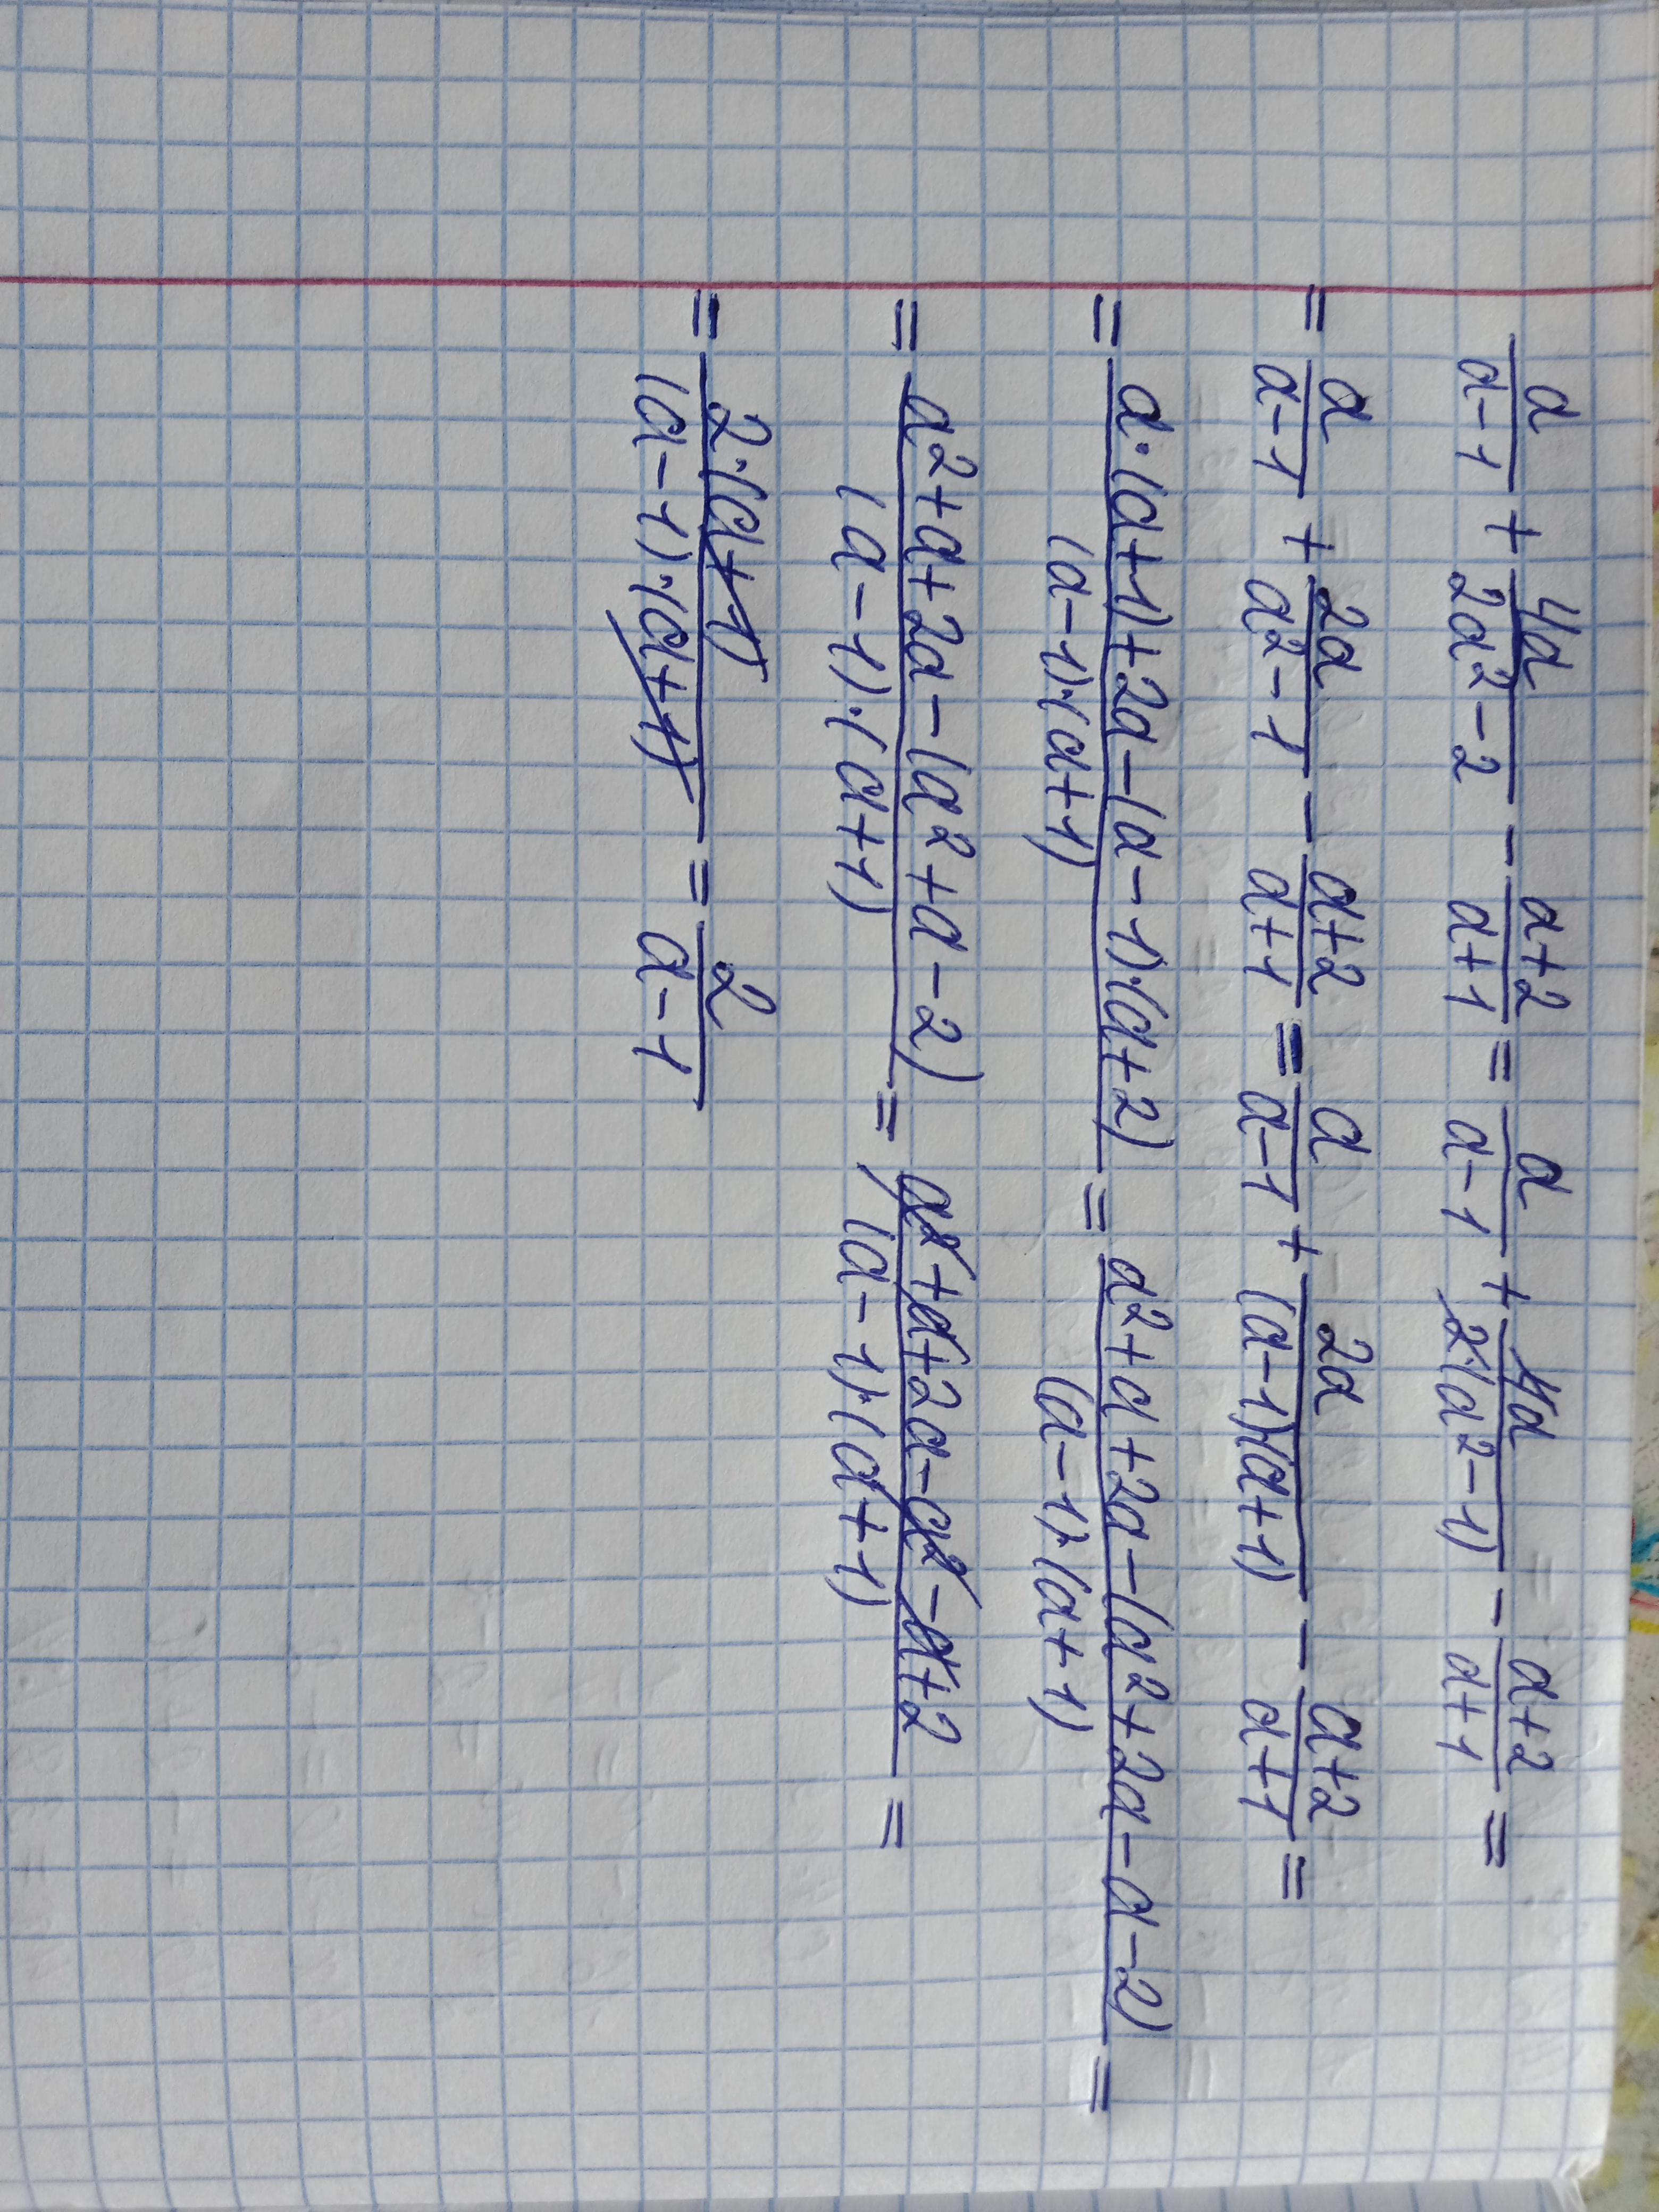 a/(a-1) + 4a/(2a²-2) - (a+2)/(a+1) = a/(a-1) + 4a/(2·(a²-1)) - (a+2)/(a+1) =
= a/(a-1) + 2a/(a²-1) - (a+2)/(a+1) = a/(a-1) + 2a/((a-1)·(a+1)) - (a+2)/(a+1) =
= (a·(a+1)+2a-(a-1)·(a+2))/((a-1)·(a+1)) = (a²+a+2a-(a²+2a-a-2))/((a-1)·(a+1)) =
= (a²+a+2a-(a²+a-2))/((a-1)·(a+1)) = (a²+a+2a-a²-a+2)/((a-1)·(a+1)) =
= (2·(a+1))/((a-1)·(a+1)) = 2/(a-1)